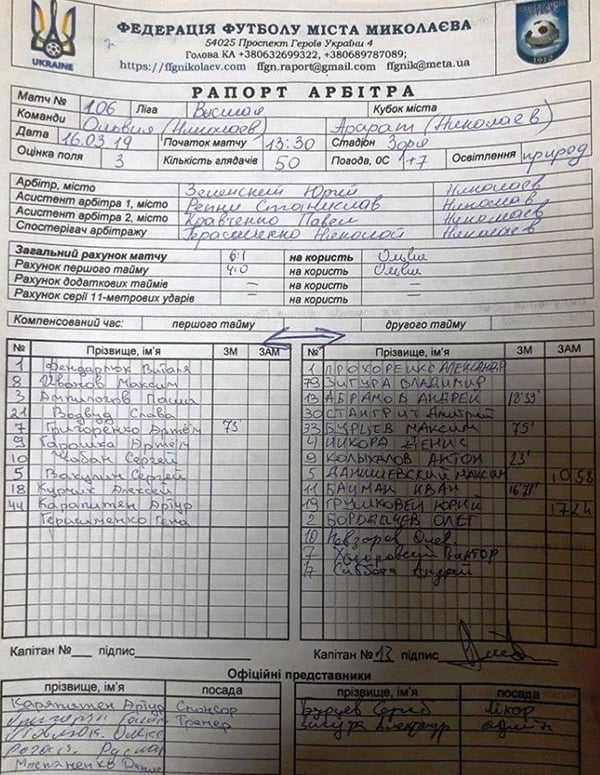 ФЕДЕРАЦІЯ ФУТБОЛУ МІСТА МИКОЛАЄВА
54025 Проспект Героїв України 4
Голова КА +380632699322, +380689787089;
https://ffgnikolaev.com ffgn.raport@gmail.com ffgnik@meta.ua
UKRAINE
РАПОРТ АРБІТРА
Матч № 106 Ліга Высшая Кубок міста
Команди Олывия (Николаев) Арарат (Николаев)
Дата 16.03.19 Початок матчу 13:30 Стадіон Зоря
Оцінка поля 3 Кількість глядачів 50 Погода, 0С +7 Освітлення природ
Арбітр, місто Зеленский Юрий Николаев
Асистент арбітра 1, місто Репин Станислав Николаев
Асистент арбітра 2, місто Кравченко Павел Николаев
Спостерігач арбітражу Герасименко Николай Николаев
Загальний рахунок матчу 6:1 на користь
Рахунок першого тайму 4:0 на користь
Рахунок додаткових таймів – на користь –
Рахунок серії 11-метрових ударів – на користь –
Компенсований час: першого тайму другого тайму
№ Прізвище, ім'я ЗМ ЗАМ № Прізвище, ім'я ЗМ ЗАМ
1 Виталя 1 ПРОХОРЕНКО АЛЕКСАНДР
8 Иванов Максим 79 ЗИГУРА ВЛАДИМИР
3 Паша 13 АБРАМОВ АНДРЕЙ
21 Слава 30 Дмитрий
7 Григоренко Артём 75' 33 БУРЦЕВ МАКСИМ 75'
9 Гарошка Артём 4 ЧИКОРА ДЕНИС
10 Чабан Сергей 9 КОЛЫХАЛОВ АНТОН 23'
5 Вакулин Сергей 5 ДАНИШЕВСКИЙ МАКСИМ 10 58
18 Алексей 11 БАЦМАН ИВАН
44 Карапитян Артур 19 ГРУШКОВЕЦ ЮРИЙ 17 24
Герасименко Гена 2 БОРДАЧЕВ ОЛЕГ
10 Невзоров Олег
7 Виктор
17 Суббота Андрей
Капітан № підпис Капітан № 13 підпис
Офіційні представники
прізвище, ім'я посада прізвище, ім'я посада
Карапитян Артур Спонсор Бурцев Лікар
Тренер Зигура Александр
Мостяненко Денис